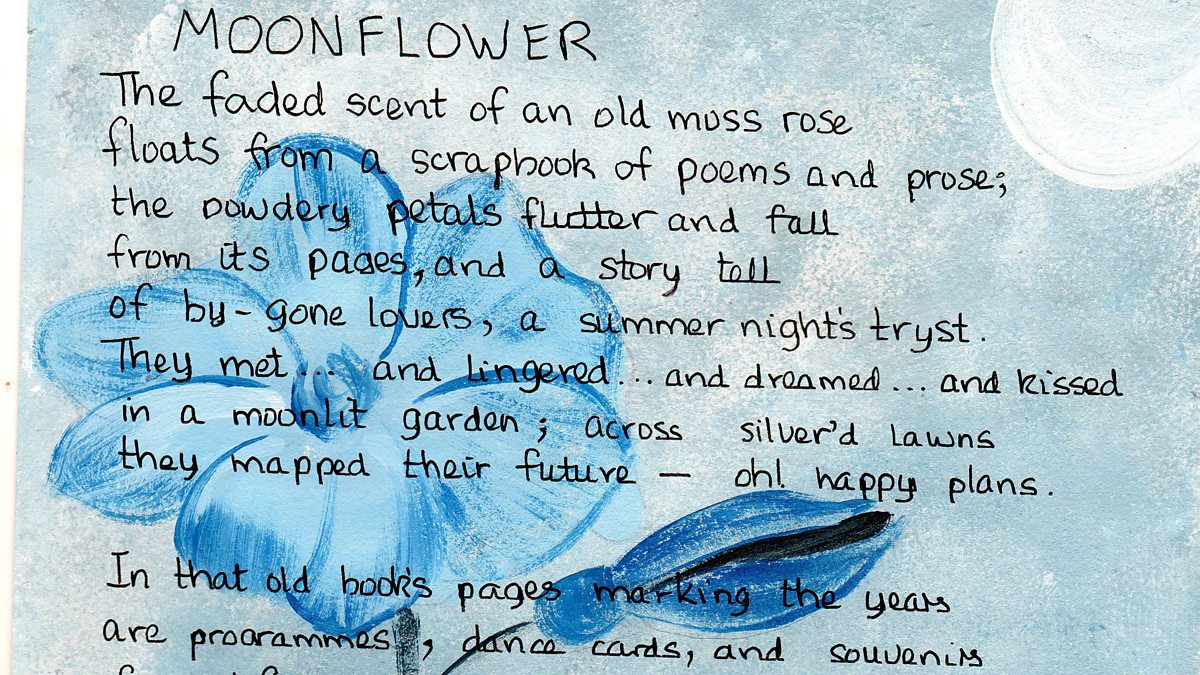 MOONFLOWER
The faded scent of an old moss rose
floats from a scrapbook of poems and prose;
the powdery petals flutter and fall
from its pages, and a story tell
of by-gone lovers, a summer night's tryst.
They met... and lingered... and dreamed... and kissed
in a moonlit garden; across silver'd lawns
they mapped their future — oh! happy plans.
In that old book's pages marking the years
are programmes, dance cards, and souvenirs